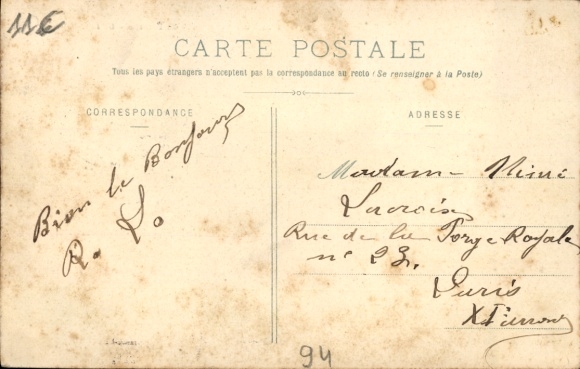 11€
CARTE POSTALE
Tous les pays étrangers n'acceptent pas la correspondance au recto (Se renseigner à la Poste)
CORRESPONDANCE
ADRESSE
Bien le Bonjour
R. L.
Madame
Lacroix
Rue de la Forge Royale
n° 23.
Paris
94